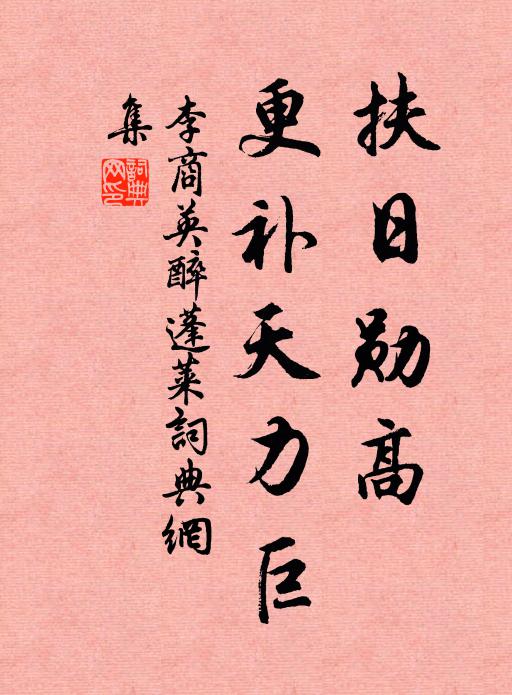 扶日勋高
更补天力巨
李商英醉蓬莱詞典網
集
詞典網印